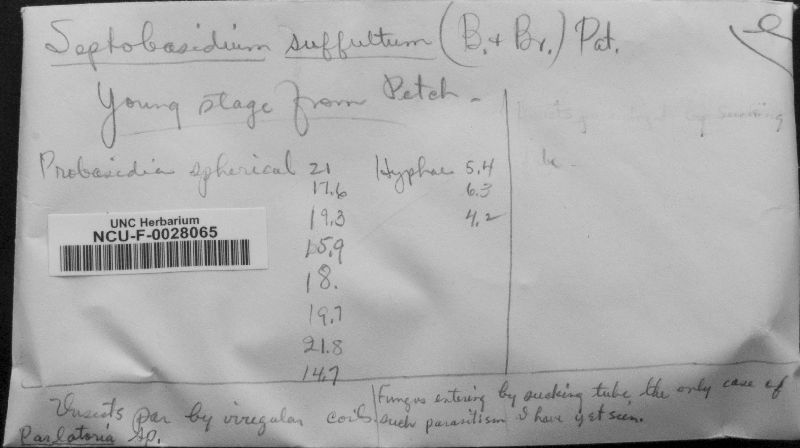 Septobasidium suffultum (B. + Br.) Pat.
Young stage from Petch -
Probasidia spherical 21
17.6
19.3
15.9
18.
19.7
21.8
14.7
Hyphae 5.4
6.3
4.2
UNC Herbarium
NCU-F-0028065
Insects par by irregular coils
Parlatoria sp.
Fungus entering by sucking tube the only case of
such parasitism I have yet seen.